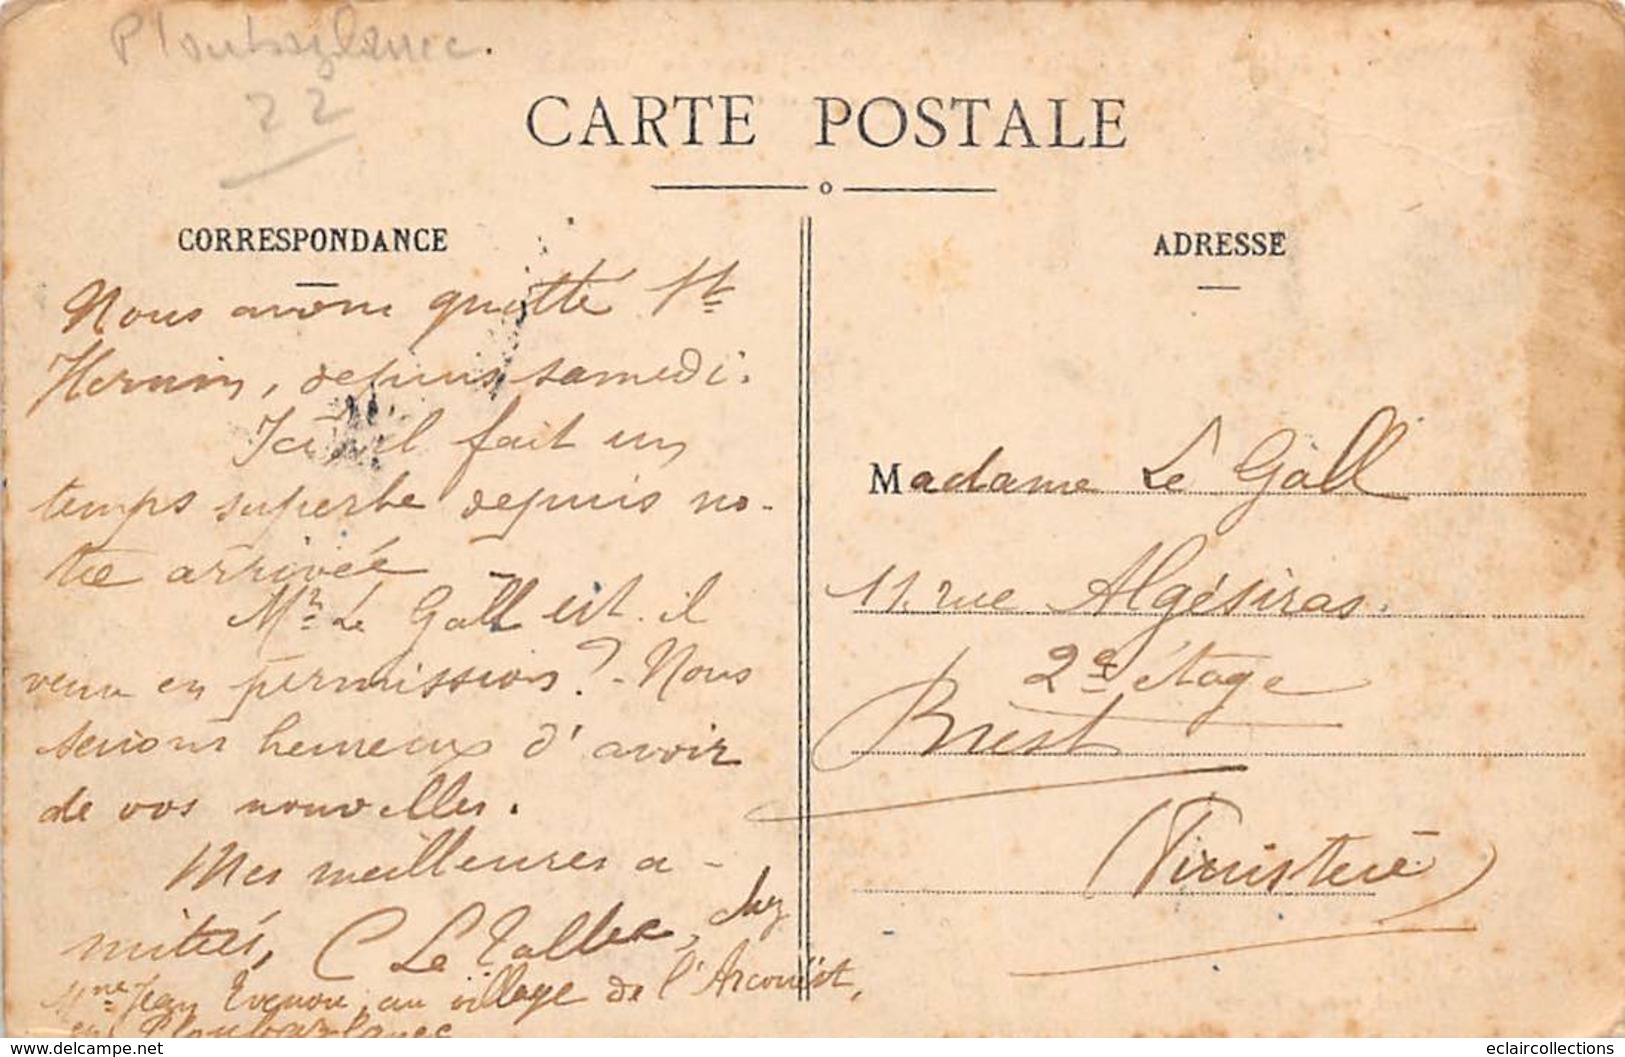 Ploubazlanec.
22
CARTE POSTALE
CORRESPONDANCE
Nous avons quitté St
Hernin, depuis samedi.
Ici il fait un
temps superbe depuis no-
tre arrivée
Mr Le Gall est-il
venu en permission? - Nous
serions heureux d'avoir
de vos nouvelles.
Mes meilleures a-
mitiés, C Le Tallec, chez
Mme Jean Evenou, au village de l'Arcouëst,
en Ploubazlanec
ADRESSE
Madame Le Gall
11. rue Algésiras.
2e étage
Brest
(Finistère)
www.delcampe.net
eclaircollections